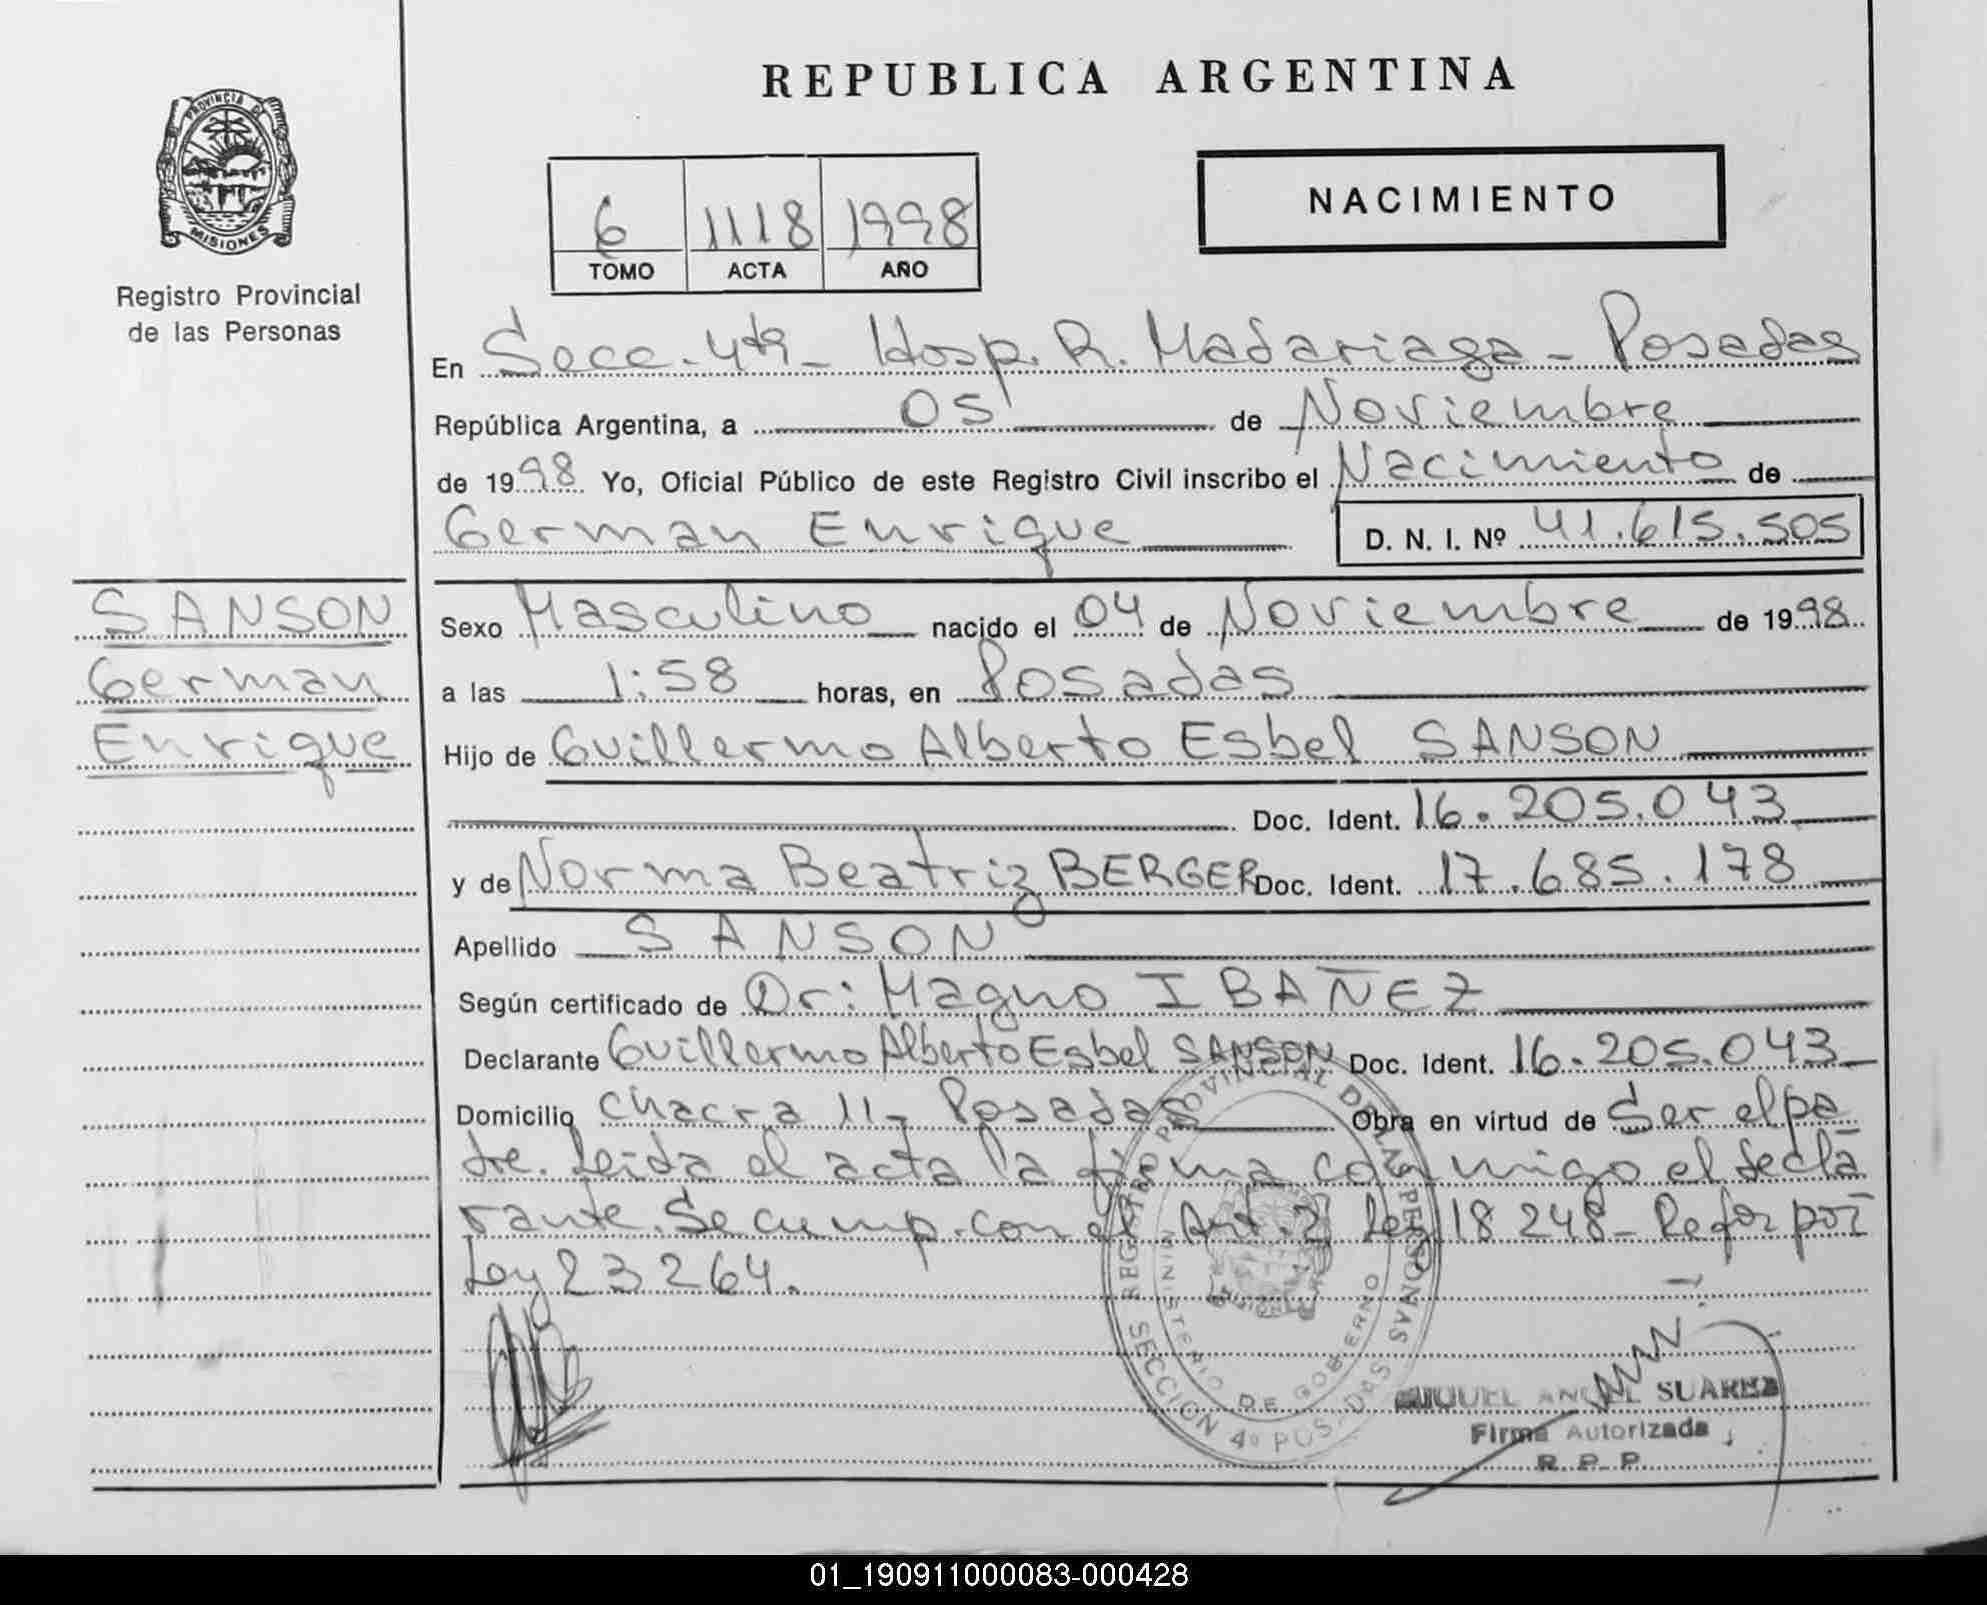 REPUBLICA ARGENTINA
PROVINCIA DE
MISIONES
Registro Provincial
de las Personas
NACIMIENTO
6 1118 1998
TOMO ACTA AÑO
En Secc. 4ta - Hosp. R. Madariaga - Posadas
República Argentina, a 05 de Noviembre
de 1998 Yo, Oficial Público de este Registro Civil inscribo el Nacimiento de
German Enrique D. N. I. Nº 41.615.505
SANSON
German
Enrique
Sexo Masculino nacido el 04 de Noviembre de 1998
a las 1:58 horas, en Posadas
Hijo de Guillermo Alberto Esbel SANSON
Doc. Ident. 16.205.043
y de Norma Beatriz BERGER Doc. Ident. 17.685.178
Apellido SANSON
Según certificado de Dr: Magno IBAÑEZ
Declarante Guillermo Alberto Esbel SANSON Doc. Ident. 16.205.043
Domicilio Chacra 11 - Posadas Obra en virtud de Ser el pa
dre. Leida el acta la firma conmigo el decla
rante. Se cump. con el Art. 2 Ley 18248 - Refor por
Ley 23264.
REGISTRO PROVINCIAL DE LAS PERSONAS
MINISTERIO DE GOBIERNO
SECCION 4º POSADAS
MIGUEL ANGEL SUAREZ
Firma Autorizada
R. P. P.
01_190911000083-000428